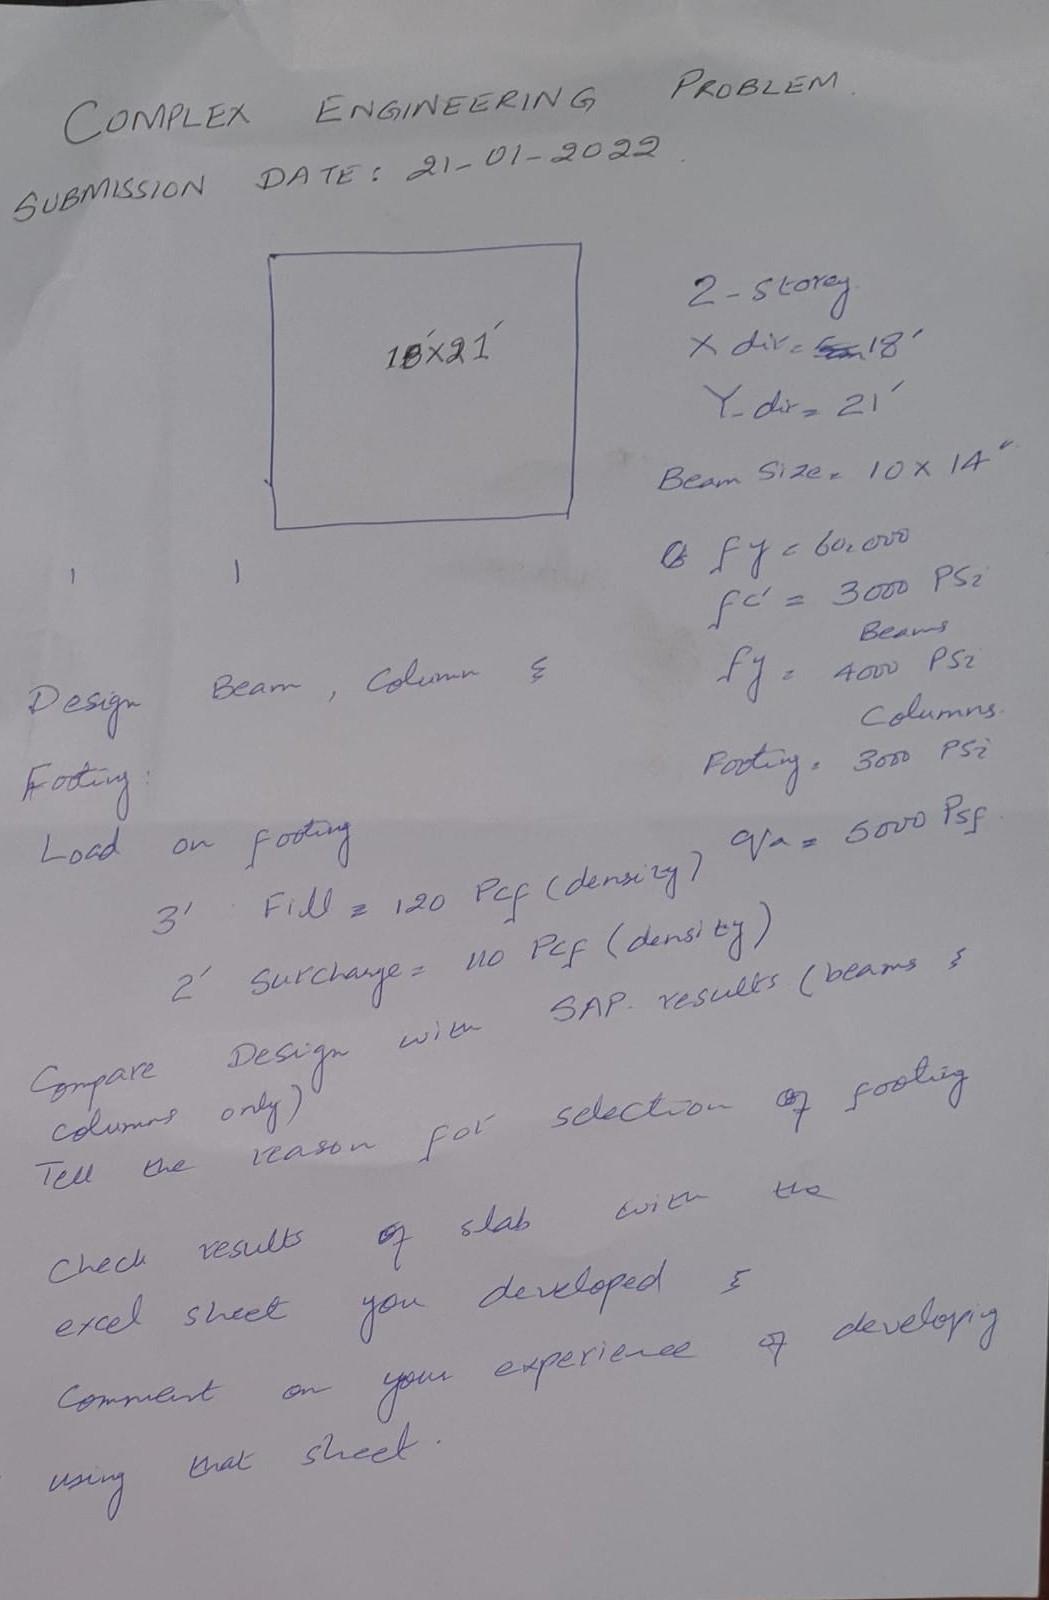 COMPLEX ENGINEERING PROBLEM.
SUBMISSION DATE: 21-01-2022.
18'x21'
2-Storey
X dir = 18'
Y-dir = 21'
Beam Size = 10 x 14"
fy = 60,000
fc' = 3000 PSi
Beams
fy = 4000 PSi
Columns.
Footing = 3000 PSi
qa = 5000 Psf.
Design Beam, Column &
Footing:
Load on footing
3' Fill = 120 Pcf (density)
2' Surcharge = 110 Pcf (density)
Compare Design with SAP. results (beams &
columns only)
Tell the reason for selection of footing
Check results of slab with the
excel sheet you developed &
Comment on your experience of developig
using that sheet.